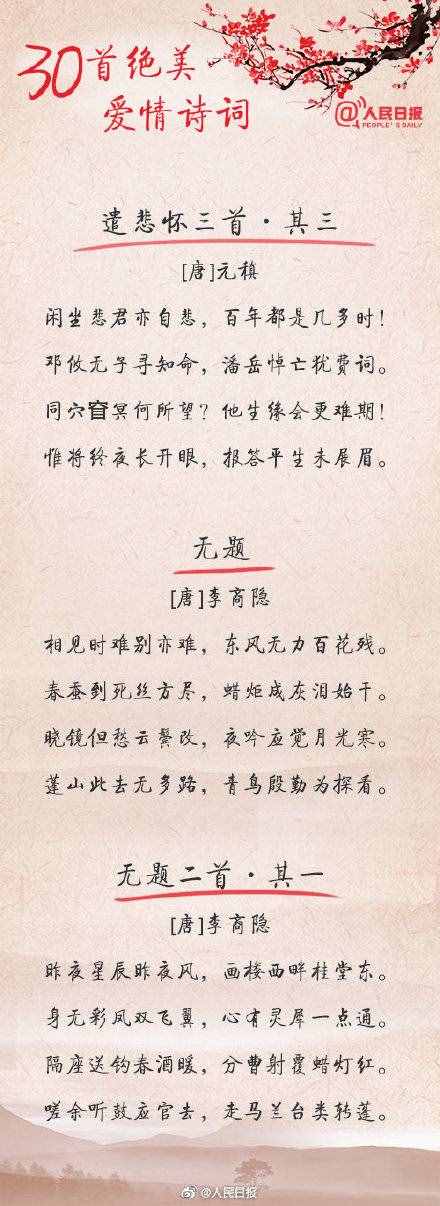 30首绝美
爱情诗词
@人民日报
PEOPLE'S DAILY
遣悲怀三首·其三
[唐]元稹
闲坐悲君亦自悲，百年都是几多时！
邓攸无子寻知命，潘岳悼亡犹费词。
同穴窅冥何所望？他生缘会更难期！
惟将终夜长开眼，报答平生未展眉。
无题
[唐]李商隐
相见时难别亦难，东风无力百花残。
春蚕到死丝方尽，蜡炬成灰泪始干。
晓镜但愁云鬓改，夜吟应觉月光寒。
蓬山此去无多路，青鸟殷勤为探看。
无题二首·其一
[唐]李商隐
昨夜星辰昨夜风，画楼西畔桂堂东。
身无彩凤双飞翼，心有灵犀一点通。
隔座送钩春酒暖，分曹射覆蜡灯红。
嗟余听鼓应官去，走马兰台类转蓬。
@人民日报